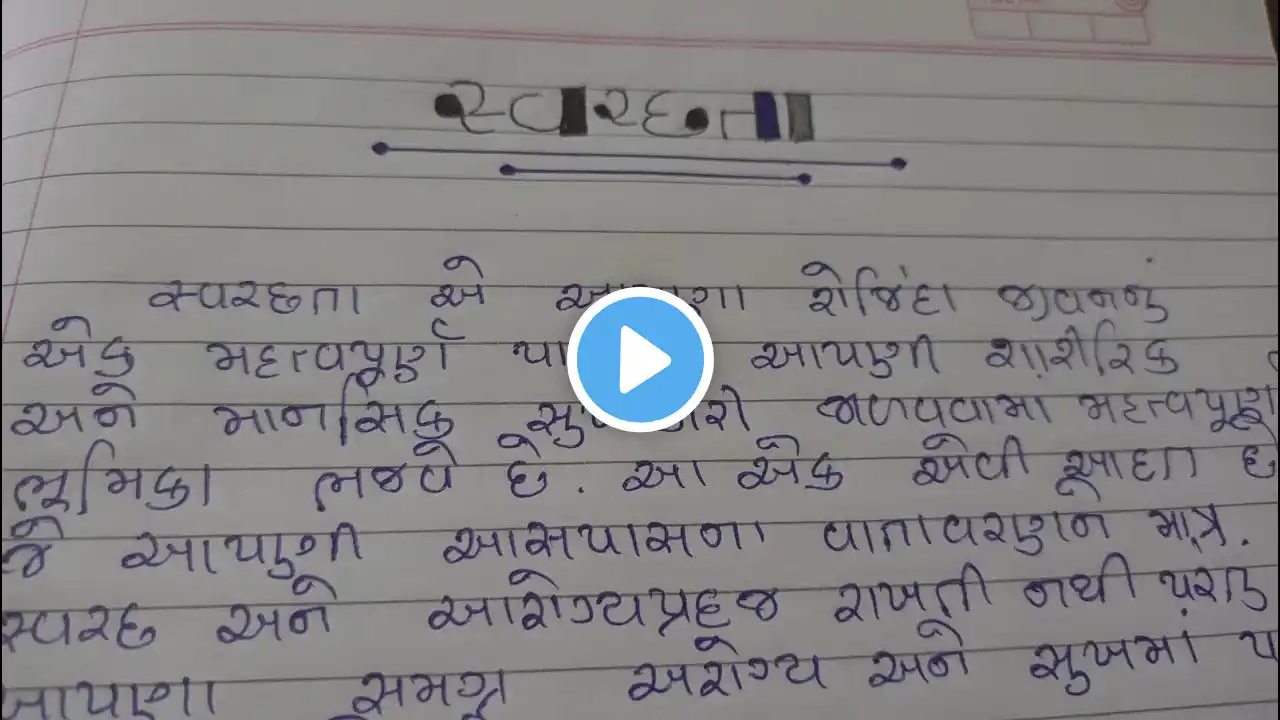 સ્વચ્છતા
સ્વચ્છતા એ રોજિંદા જીવનનું
એક મહત્વપૂર્ણ આપણી શારીરિક
અને માનસિક જાળવવામા મહત્વપૂર્ણ
ભૂમિકા ભજવે છે. આ એક એવી આદત છે
જે આપણી આસપાસના વાતાવરણને માત્ર.
સ્વચ્છ અને આરોગ્યપ્રદજ રાખતી નથી પરંતુ
આપણા સમગ્ર અરોગ્ય અને સુખમાં